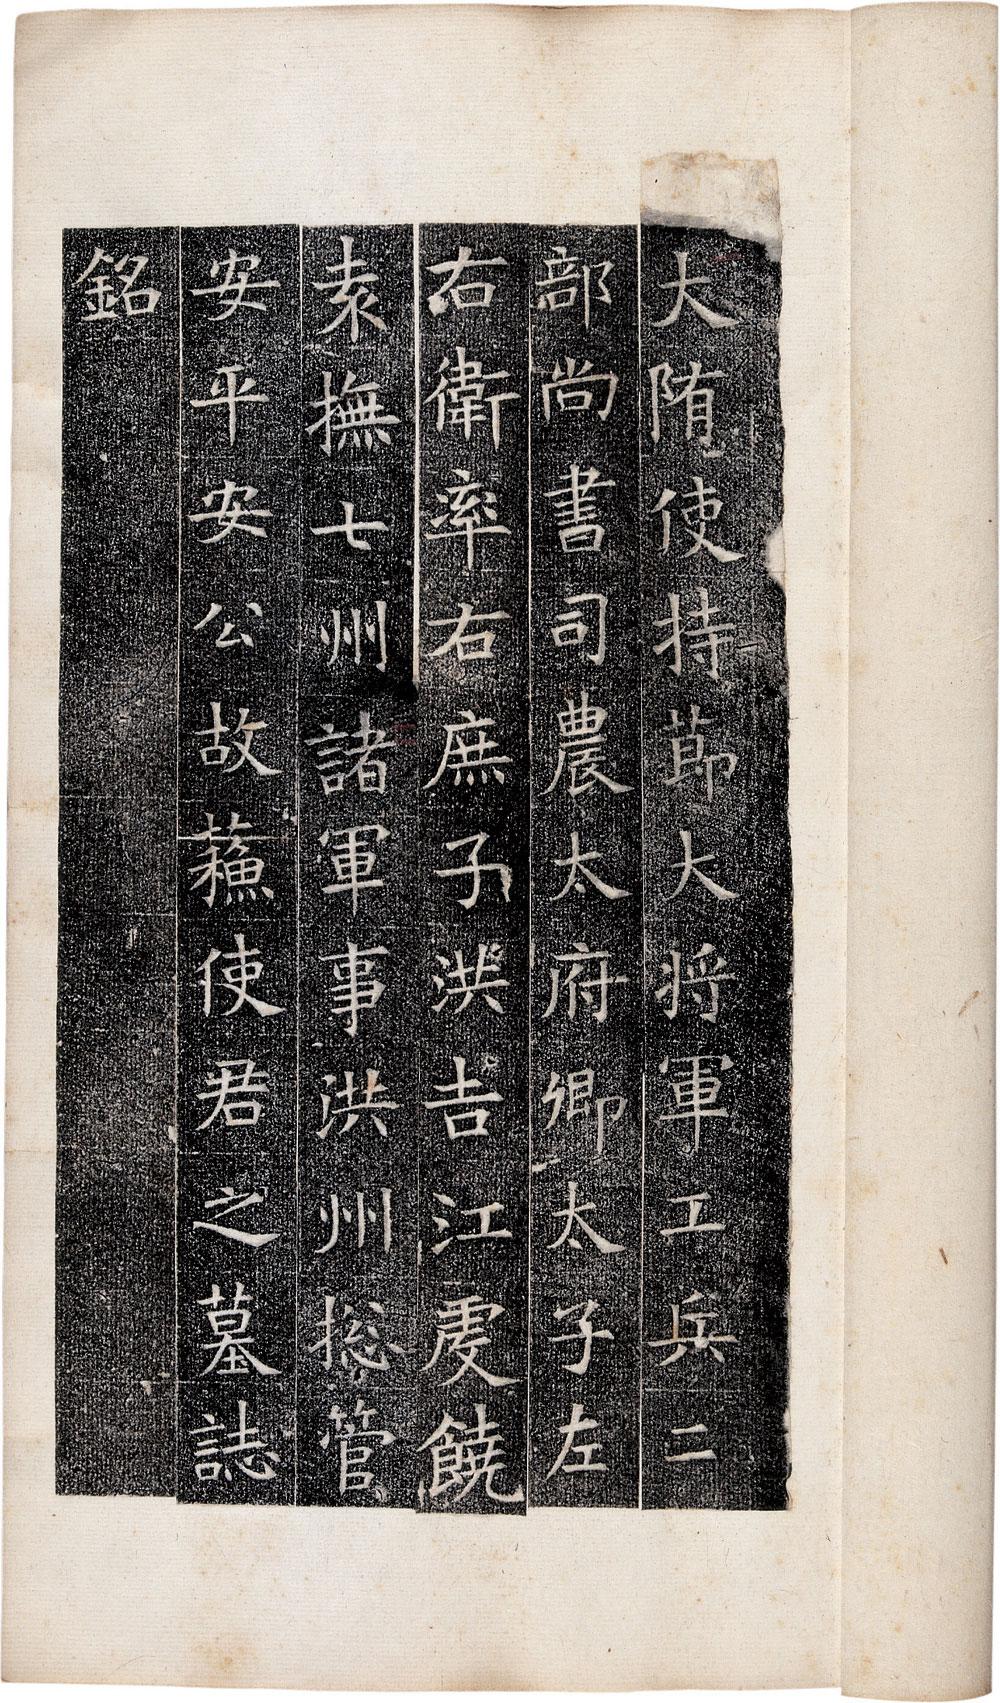 大隋使持節大將軍工兵二
部尚書司農太府卿太子左
右衛率右庶子洪吉江虔饒
袁撫七州諸軍事洪州揔管
安平安公故蘓使君之墓誌
銘